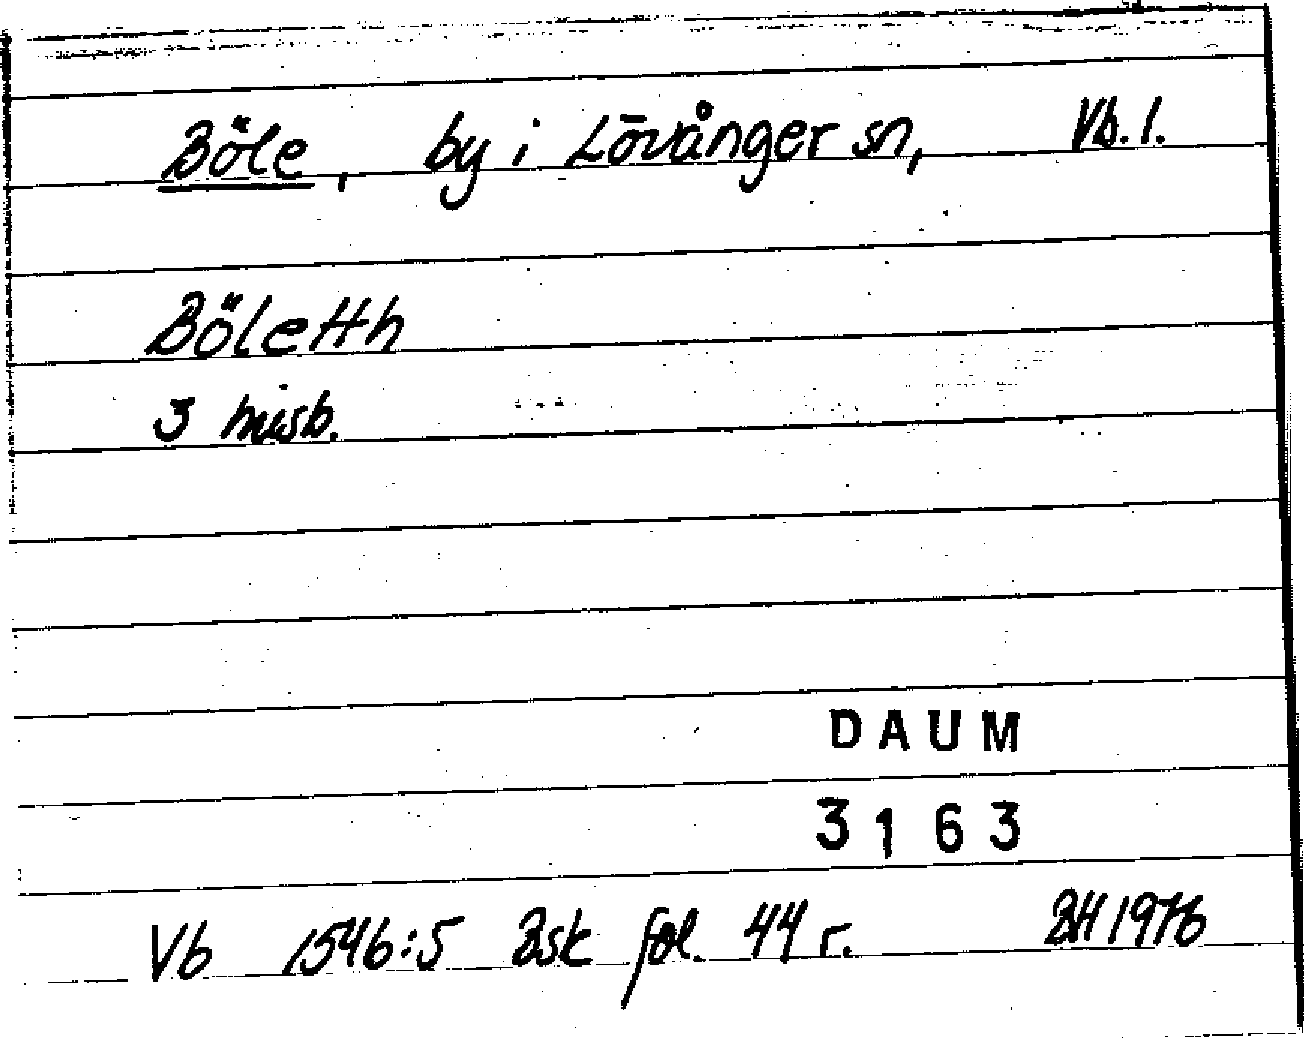 Böle, by i Lövånger sn, Vb. l.
Böletth
3 husb.
DAUM
3163
Vb 1546:5 Bsk fol. 44 r. BH 1976